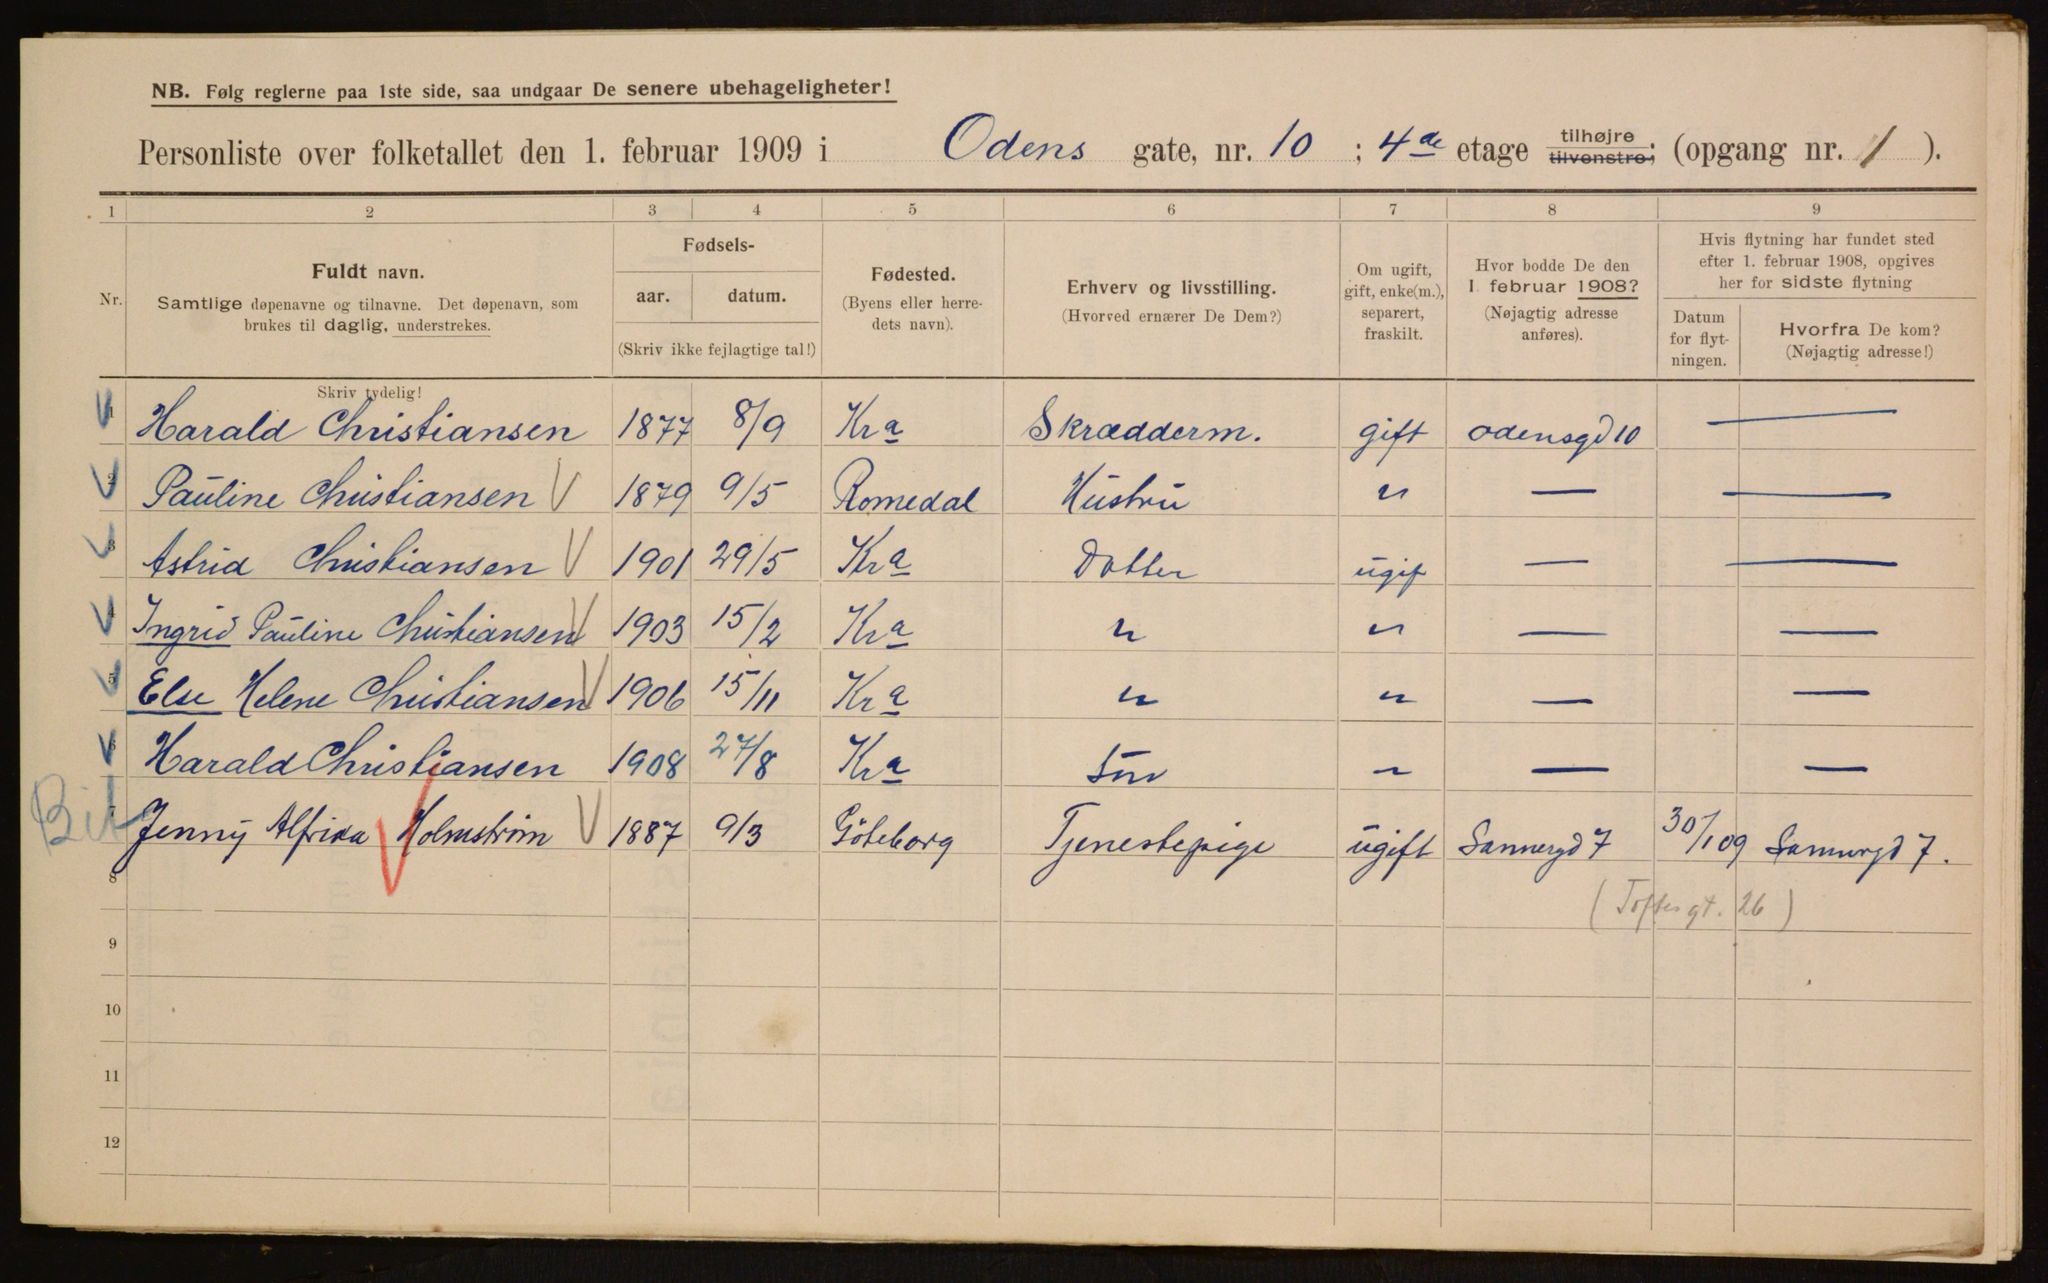 NB. Følg reglerne paa 1ste side, saa undgaar De senere ubehageligheter!
Personliste over folketallet den 1. februar 1909 i Odens gate, nr. 10 ; 4de etage tilhøjre tilvenstre; (opgang nr. 1 ).
1 2 3 4 5 6 7 8 9
Nr.
Fuldt navn.
Samtlige døpenavne og tilnavne. Det døpenavn, som
brukes til daglig, understrekes.
Fødsels-
aar. datum.
(Skriv ikke fejlagtige tal!)
Fødested.
(Byens eller herre-
dets navn).
Erhverv og livsstilling.
(Hvorved ernærer De Dem?)
Om ugift,
gift, enke(m.),
separert,
fraskilt.
Hvor bodde De den
1. februar 1908?
(Nøjagtig adresse
anføres).
Hvis flytning har fundet sted
efter 1. februar 1908, opgives
her for sidste flytning
Datum
for flyt-
ningen.
Hvorfra De kom?
(Nøjagtig adresse!)
Skriv tydelig!
1 Harald Christiansen 1877 8/9 Kra Skrædderm. gift Odensgd 10 —
2 Pauline Christiansen 1879 9/5 Romedal Hustru " — —
3 Astrid Christiansen 1901 29/5 Kra Datter ugif — —
4 Ingrid Pauline Christiansen 1903 15/2 Kra " " — —
5 Else Helene Christiansen 1906 15/11 Kra " " — —
6 Harald Christiansen 1908 27/8 Kra Søn " — —
7 Jenny Alfrida Holmstrøm 1887 9/3 Göteborg Tjenestepige ugift Sannergd 7 30/1 09 Sannergd 7.
8 (Toftesgt. 26)
9
10
11
12